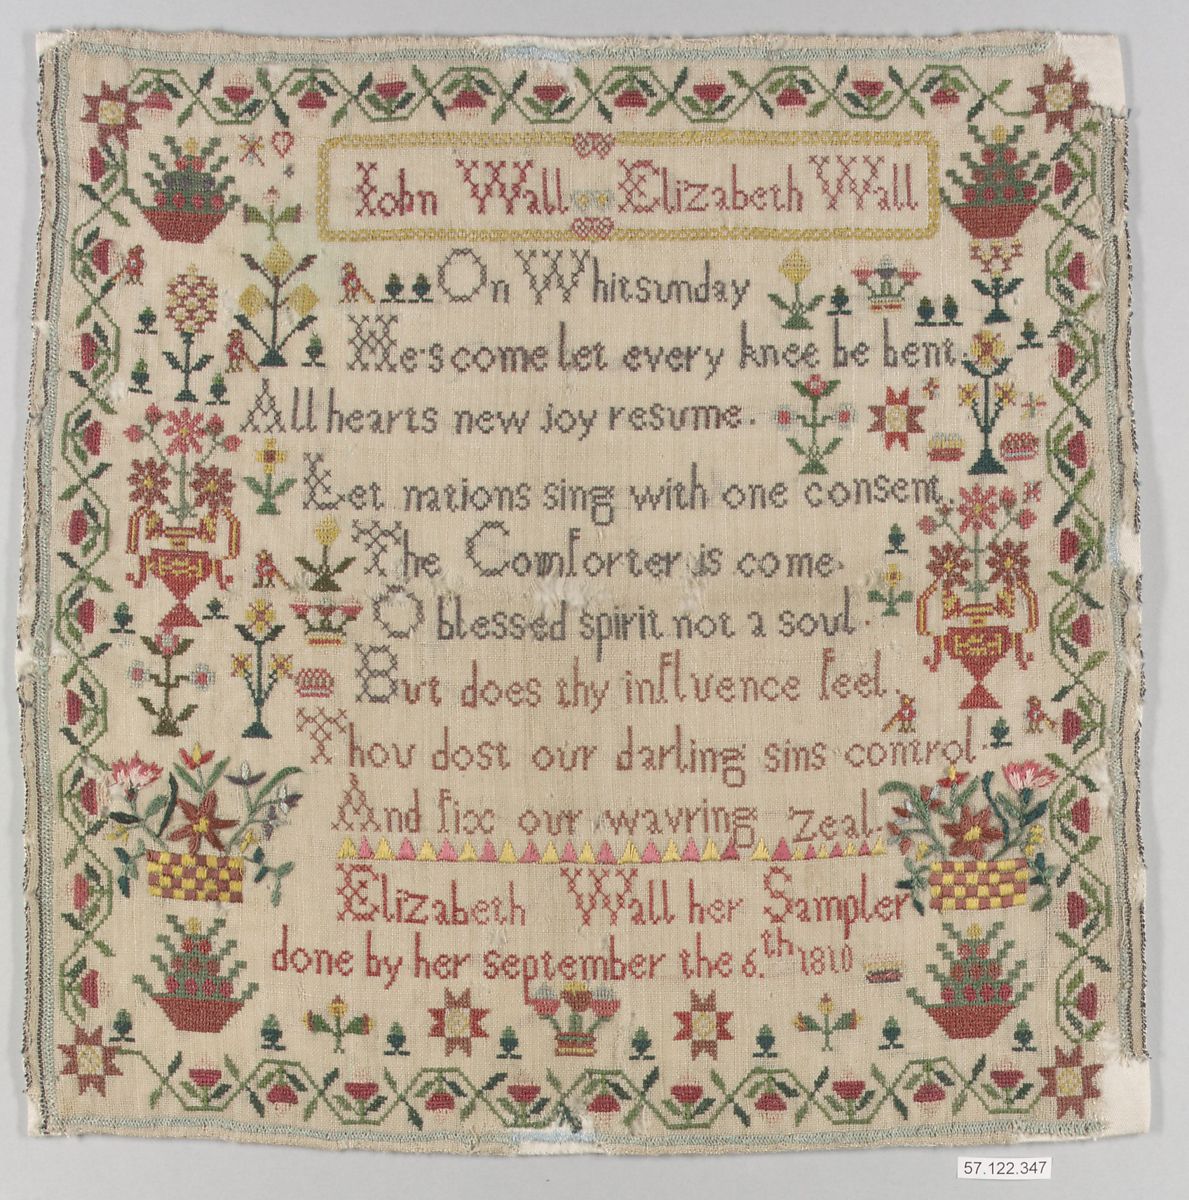 Iohn Wall Elizabeth Wall
On Whitsunday
He·s come let every knee be bent.
All hearts new joy resume.
Let nations sing with one consent.
The Comforter is come.
O blessed spirit not a soul.
But does thy influence feel.
Thou dost our darling sins control.
And fix our wavring zeal.
Elizabeth Wall her Sampler
done by her september the 6.th 1810
57.122.347